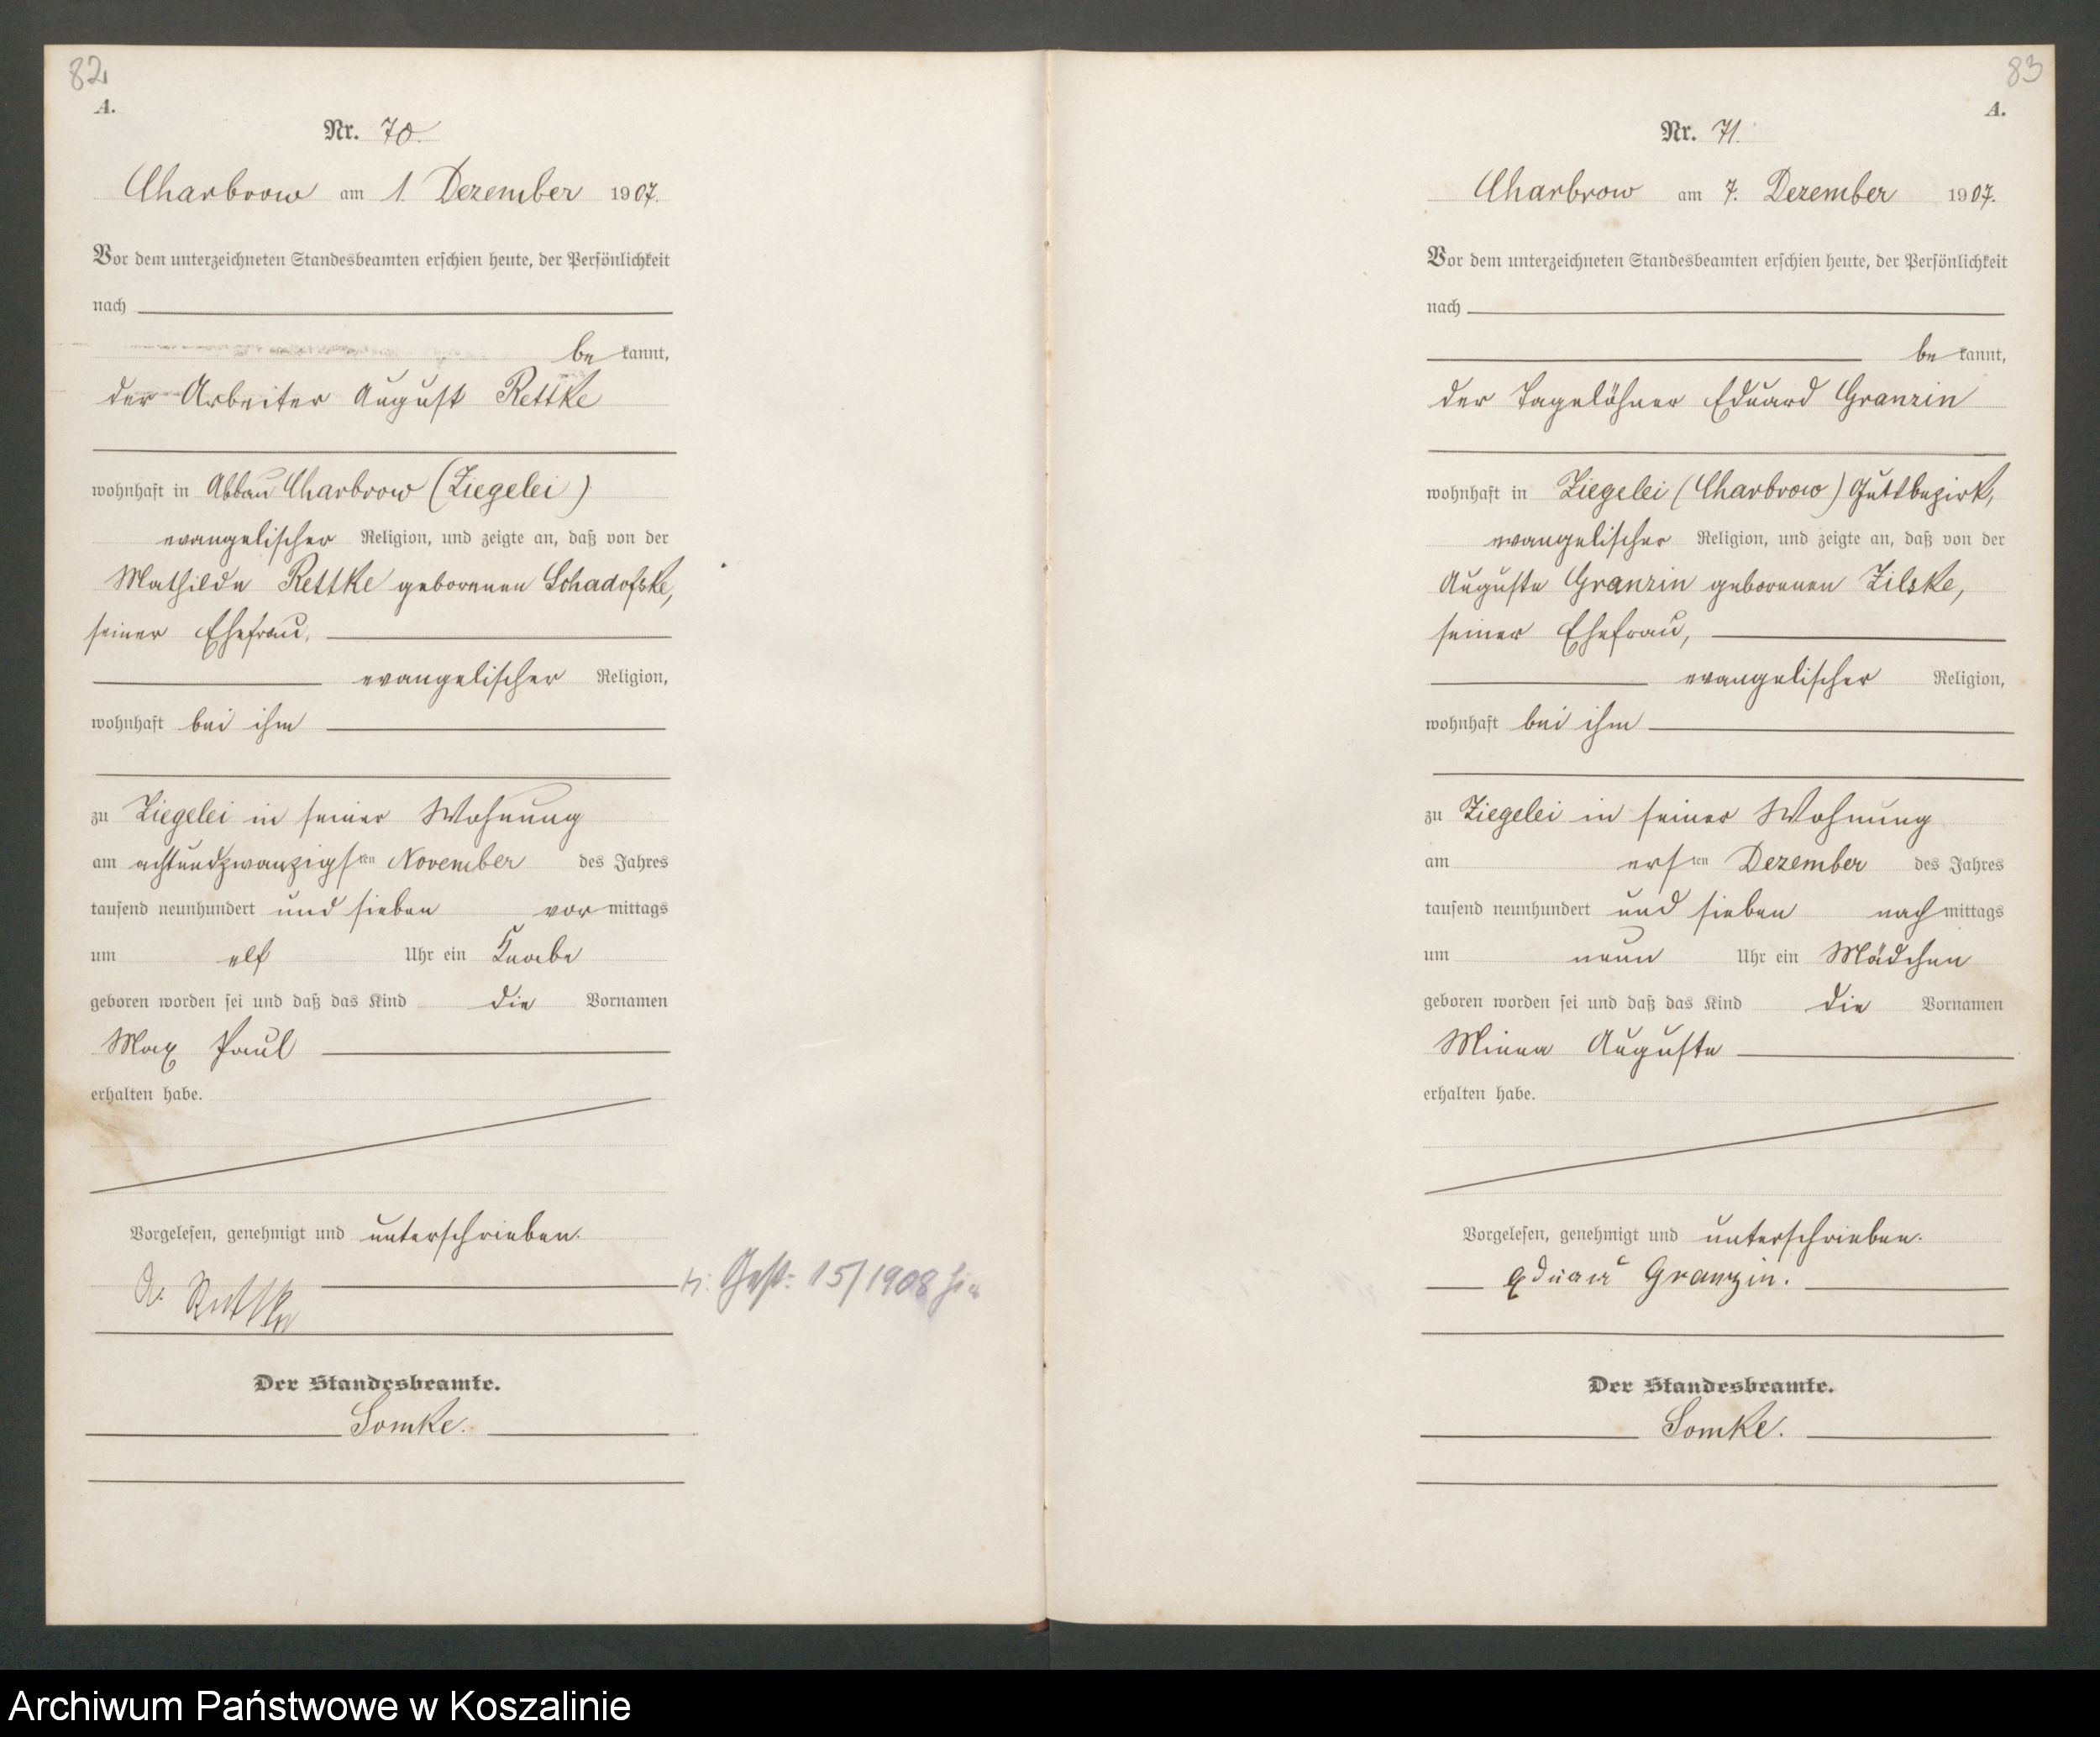 82
A.
Nr. 70.
Charbrow am 1. Dezember 1907.
Vor dem unterzeichneten Standesbeamten erschien heute, der Persönlichkeit
nach
bekannt,
der Arbeiter August Rettke
wohnhaft in Abbau Charbrow (Ziegelei)
evangelischer Religion, und zeigte an, daß von der
Mathilde Rettke geborenen Schadofske,
seiner Ehefrau,
evangelischer Religion,
wohnhaft bei ihm
zu Ziegelei in seiner Wohnung
am achtundzwanzigsten November des Jahres
tausend neunhundert und sieben vormittags
um elf Uhr ein Knabe
geboren worden sei und daß das Kind die Vornamen
Max Paul
erhalten habe.
Vorgelesen, genehmigt und unterschrieben.
A. Rettke
15/1908
Der Standesbeamte.
Somke.
83
A.
Nr. 71.
Charbrow am 7. Dezember 1907.
Vor dem unterzeichneten Standesbeamten erschien heute, der Persönlichkeit
nach
bekannt,
der Tagelöhner Eduard Granzin
wohnhaft in Ziegelei (Charbrow) Gutsbezirk,
evangelischer Religion, und zeigte an, daß von der
Auguste Granzin geborenen Zilske,
seiner Ehefrau,
evangelischer Religion,
wohnhaft bei ihm
zu Ziegelei in seiner Wohnung
am ersten Dezember des Jahres
tausend neunhundert und sieben nachmittags
um neun Uhr ein Mädchen
geboren worden sei und daß das Kind die Vornamen
Minna Auguste
erhalten habe.
Vorgelesen, genehmigt und unterschrieben.
Eduard Granzin.
Der Standesbeamte.
Somke.
Archiwum Państwowe w Koszalinie